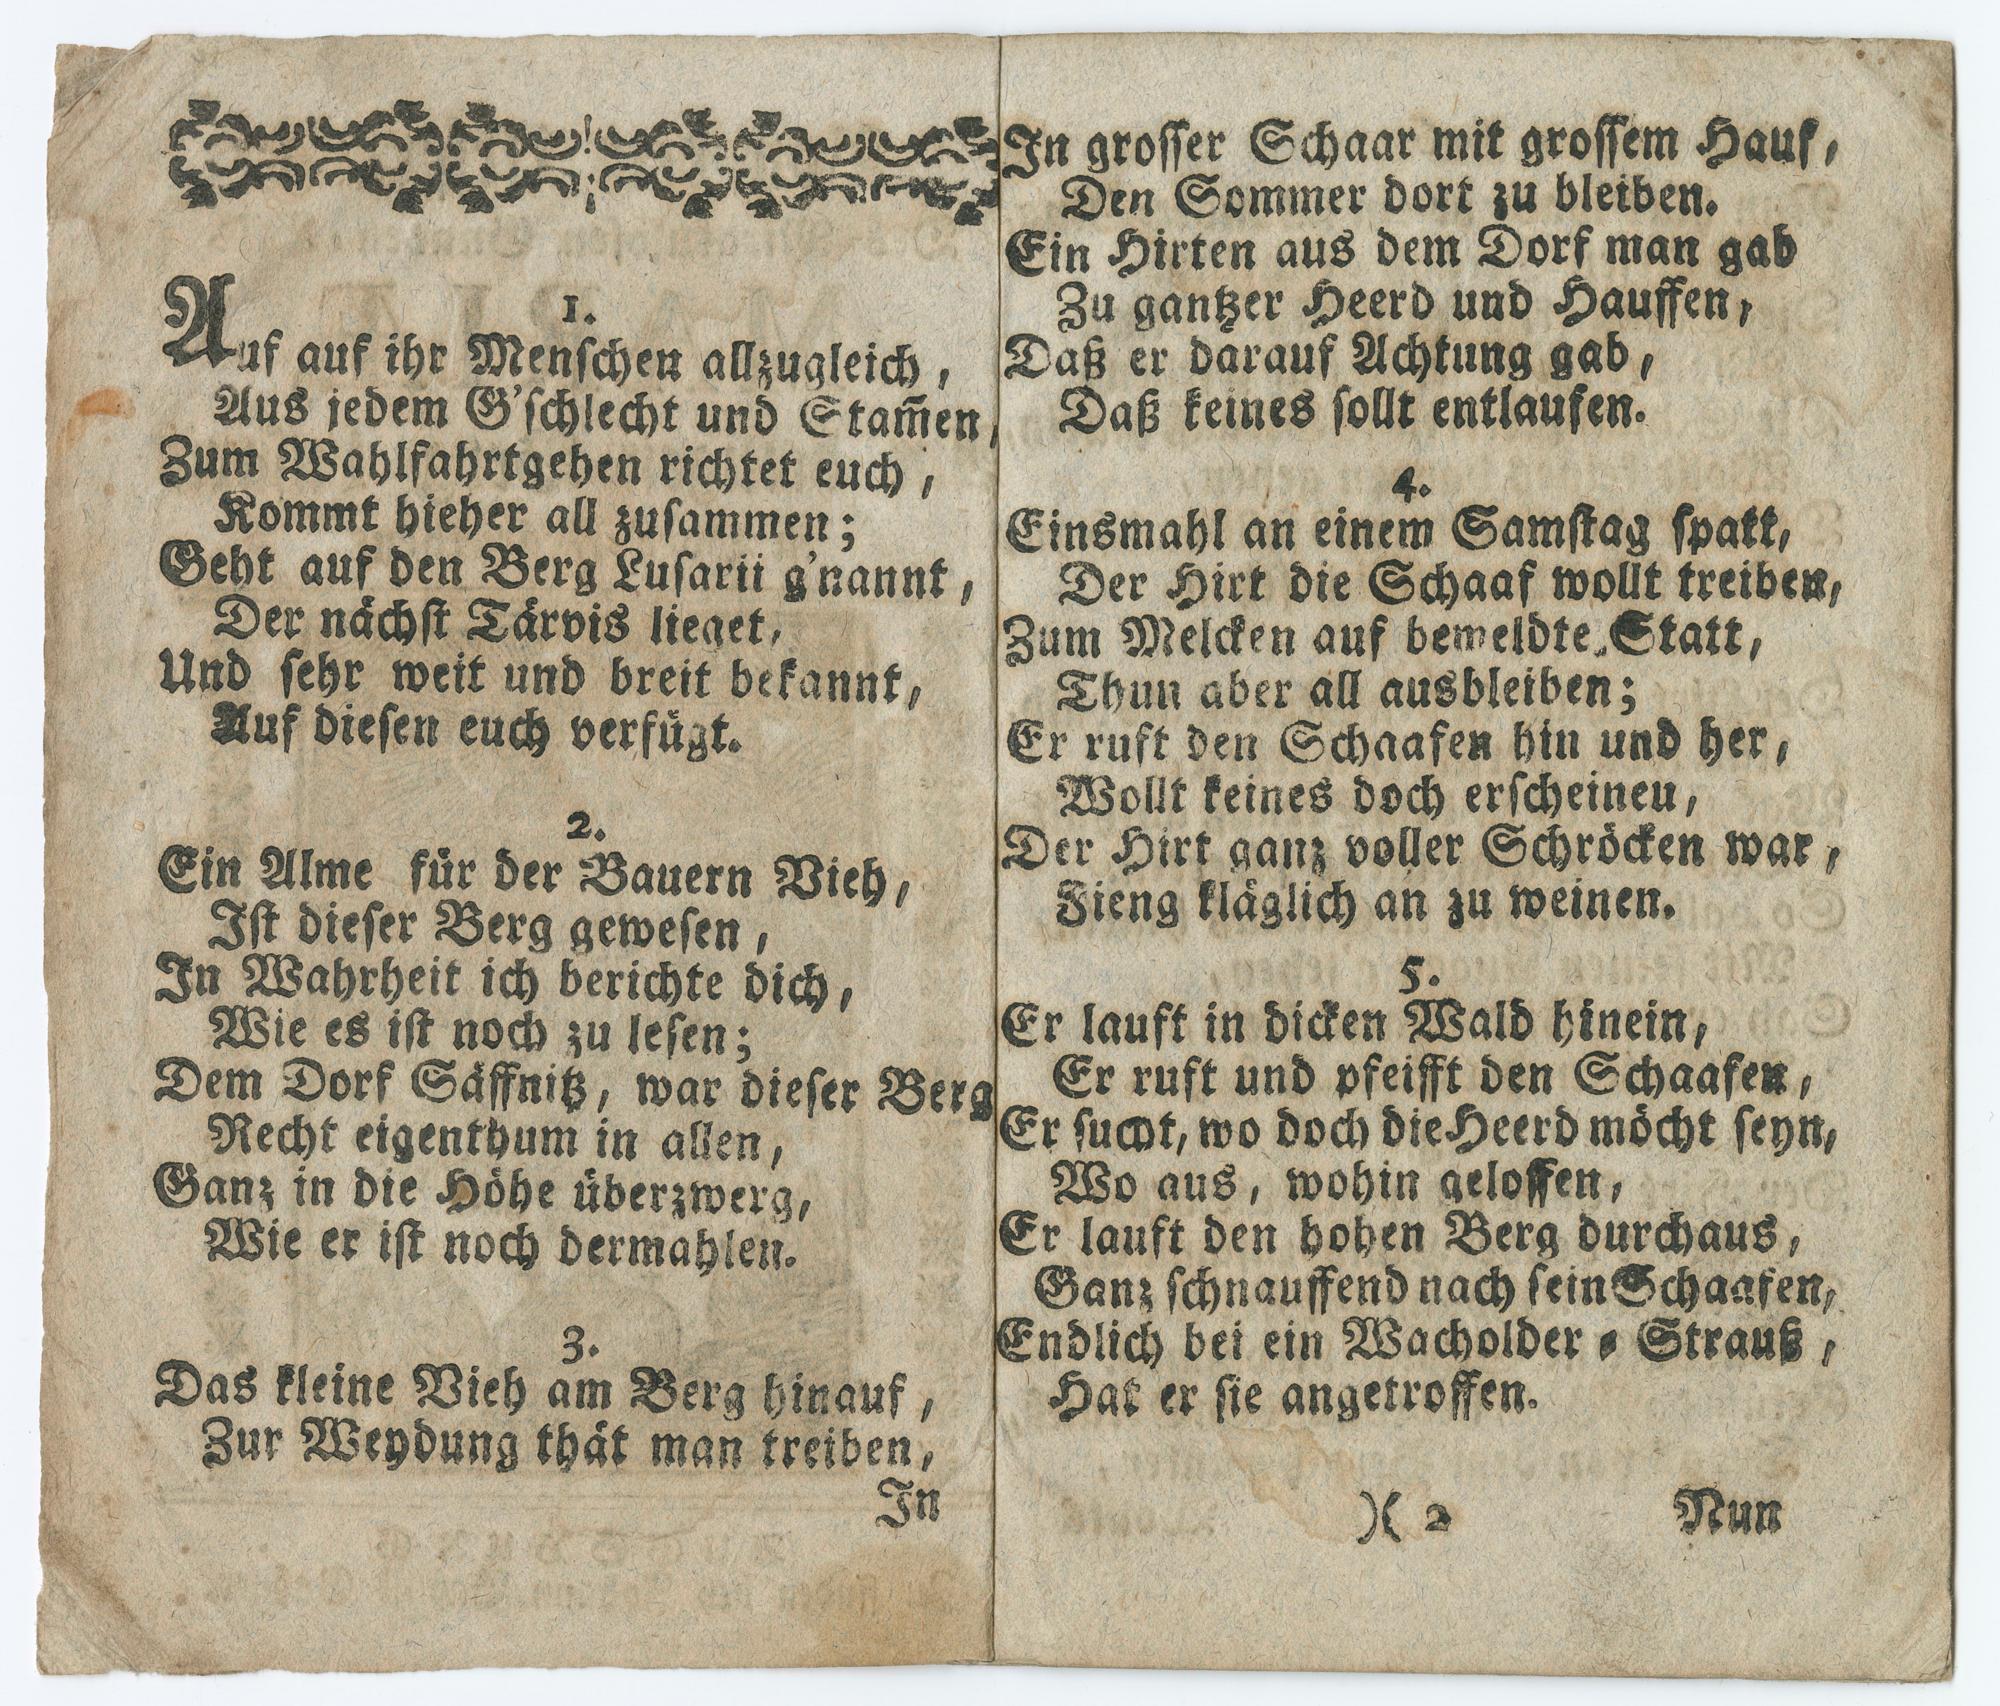 1.
Auf auf ihr Menschen allzugleich,
Aus jedem G'schlecht und Stam̄en,
Zum Wahlfahrtgehen richtet euch,
Kommt hieher all zusammen;
Geht auf den Berg Lusarii g'nannt,
Der nächst Tärvis lieget,
Und sehr weit und breit bekannt,
Auf diesen euch verfügt.
2.
Ein Alme für der Bauern Vieh,
Ist dieser Berg gewesen,
In Wahrheit ich berichte dich,
Wie es ist noch zu lesen;
Dem Dorf Säffnitz, war dieser Berg
Recht eigenthum in allen,
Ganz in die Höhe überzwerg,
Wie er ist noch dermahlen.
3.
Das kleine Vieh am Berg hinauf,
Zur Weydung thät man treiben,
In
In grosser Schaar mit grossem Hauf,
Den Sommer dort zu bleiben.
Ein Hirten aus dem Dorf man gab
Zu gantzer Heerd und Hauffen,
Daß er darauf Achtung gab,
Daß keines sollt entlaufen.
4.
Einsmahl an einem Samstag spatt,
Der Hirt die Schaaf wollt treiben,
Zum Melcken auf bemeldte Statt,
Thun aber all ausbleiben;
Er ruft den Schaafen hin und her,
Wollt keines doch erscheineu,
Der Hirt ganz voller Schröcken war,
Fieng kläglich an zu weinen.
5.
Er lauft in dicken Wald hinein,
Er ruft und pfeifft den Schaafen,
Er sucht, wo doch die Heerd möcht seyn,
Wo aus, wohin geloffen,
Er lauft den hohen Berg durchaus,
Ganz schnauffend nach sein Schaafen,
Endlich bei ein Wacholder-Strauß,
Hat er sie angetroffen.
)( 2 Nun